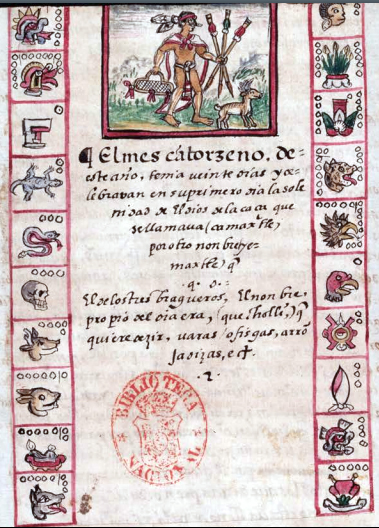 ¶ El mes catorzeno, de=
este año, tenia veinte dias y çe=
lebravan en su primero dia la sole
nidad de El dios de la caça que
se llamava (camaxtle,)
por otro nonbre ye=
maxtle) q̃
El de los tres bragueros, El nonbre,
propio del dia era, (quecholli) q̃
quiere dezir, varas o fisgas, arro
jadizas,
.2.
BIBLIOTECA
NACIONAL